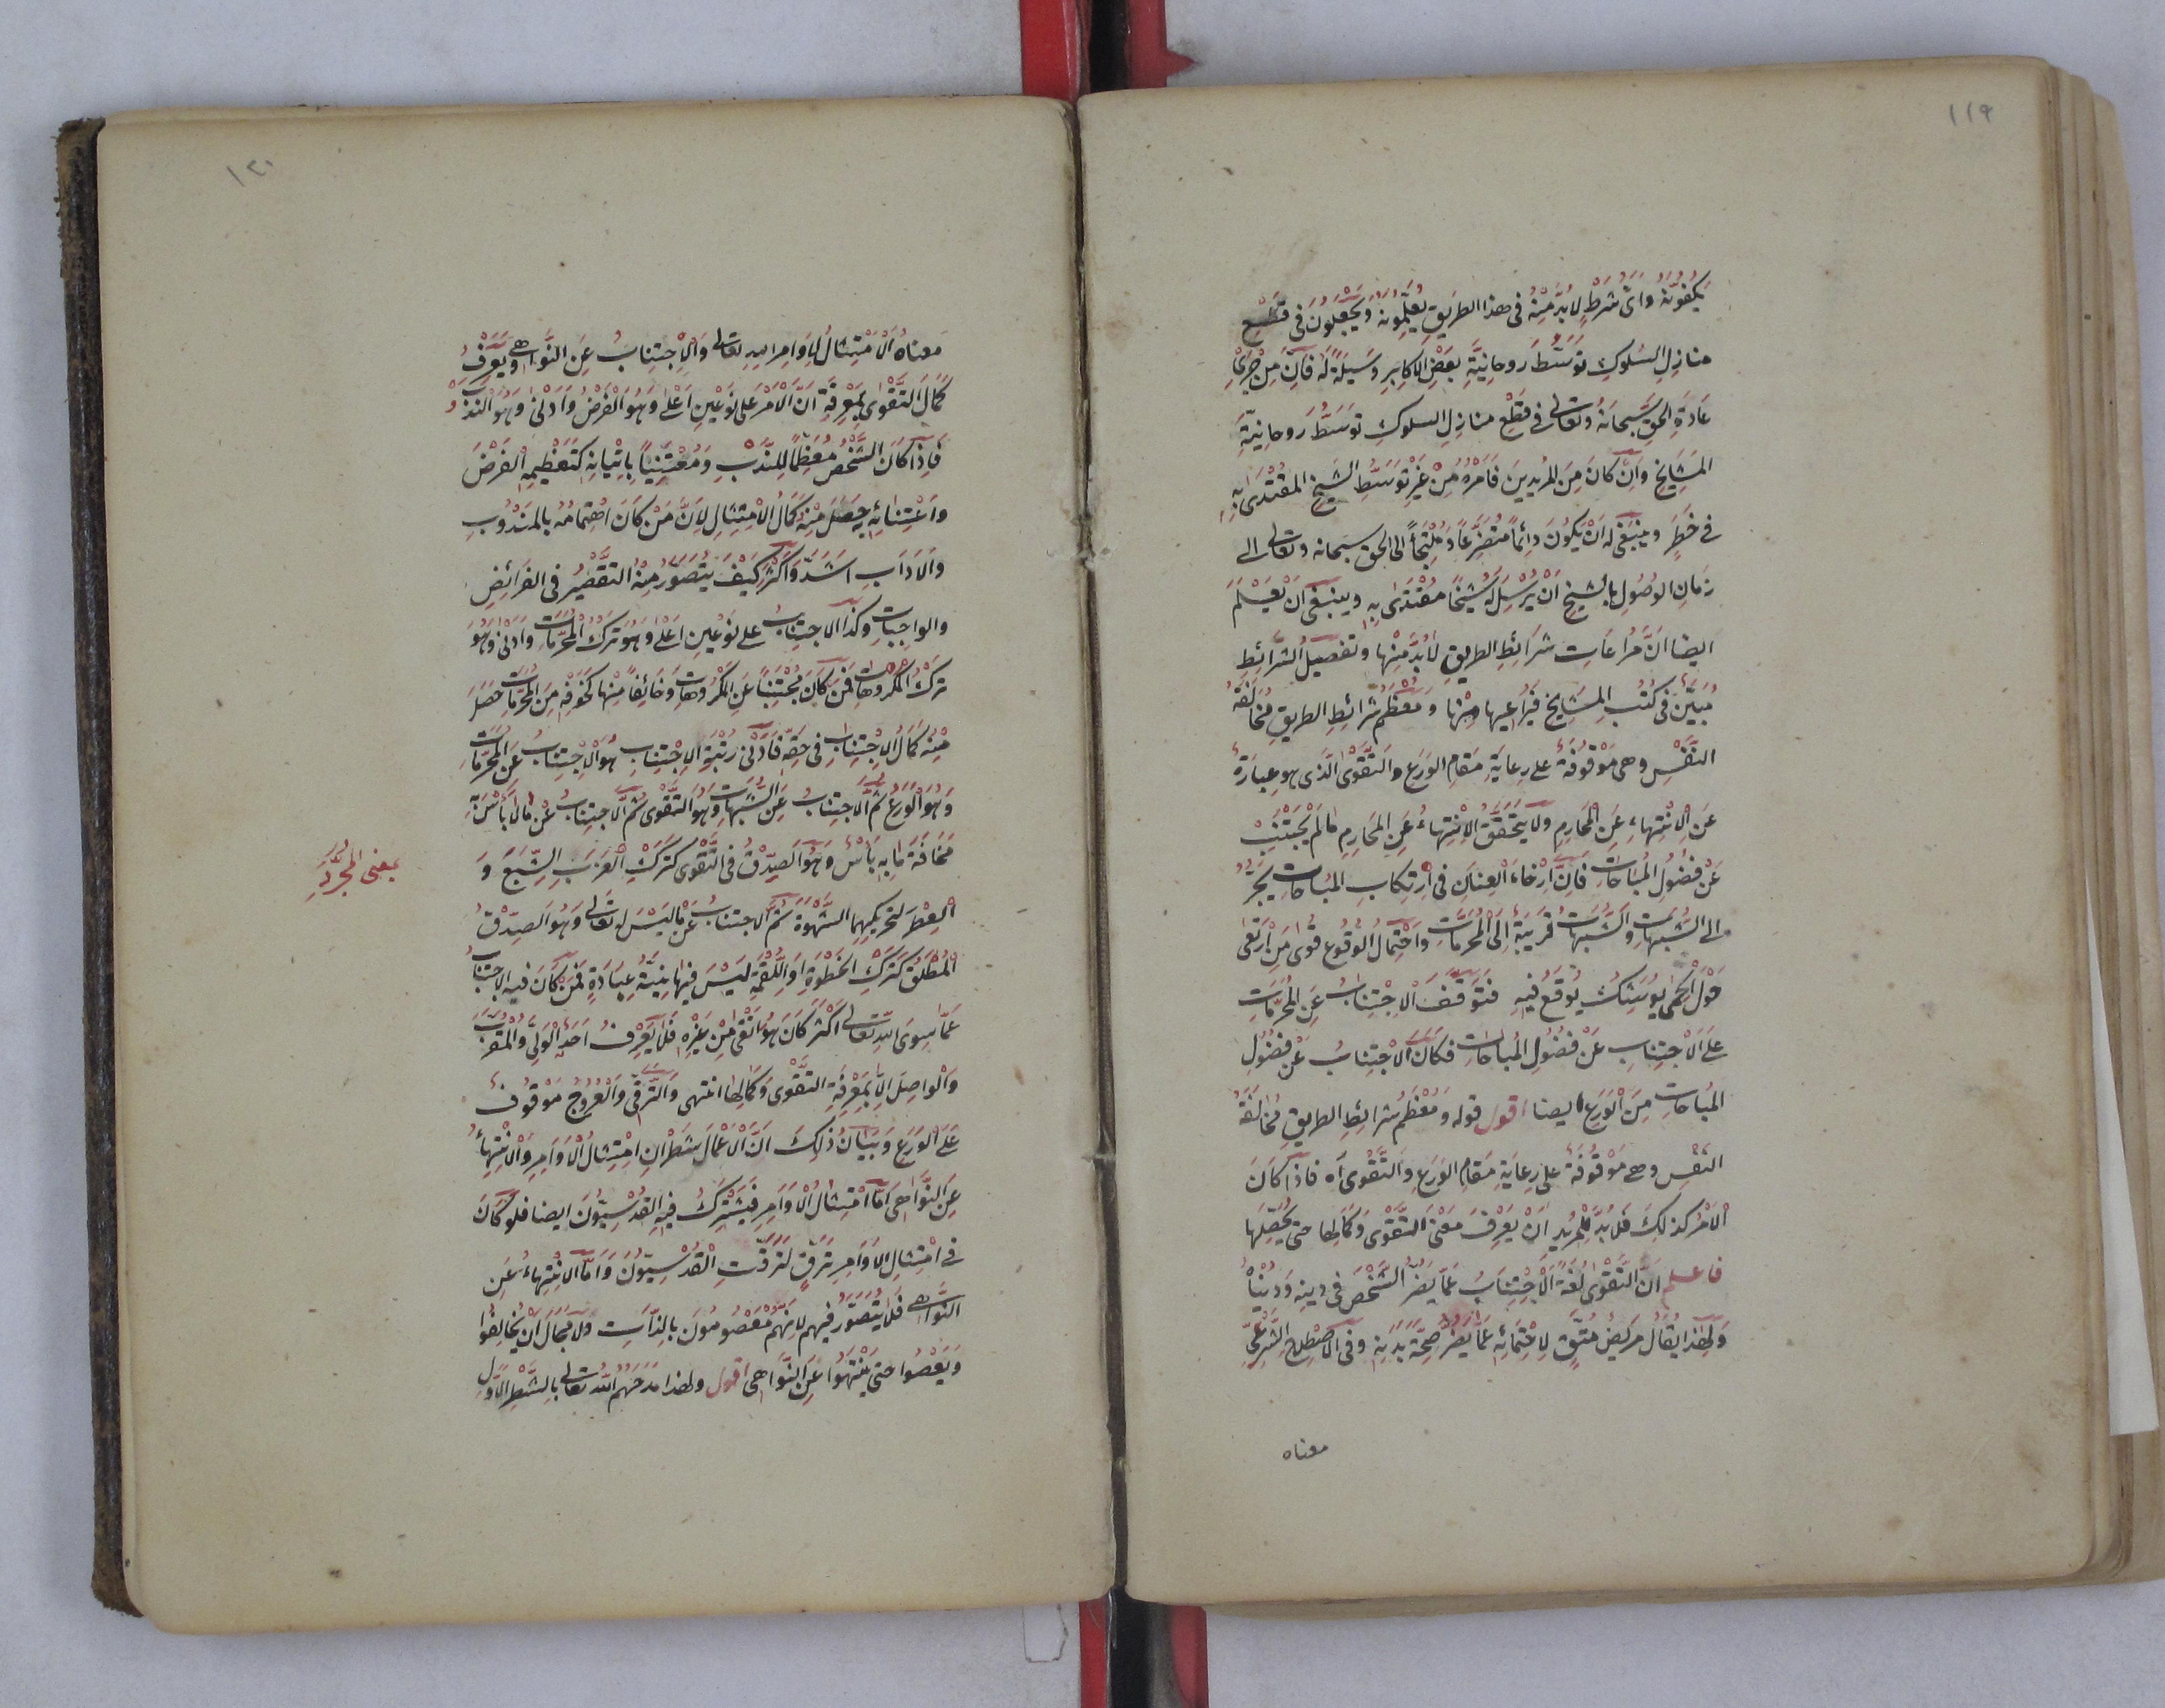 ١١٩
يكفونه واى شرط لا بد منه فى هذا الطريق يعلمونه ويجعلون فى قطع
منازل السلوك توسط روحانية بعض الاكابر وسيلة له فان من جرى
عادة الحق سبحانه وتعالى فى قطع منازل السلوك توسط روحانية
المشايخ وان كان من المريدين فامره من غير توسط الشيخ المقتدى به
فى خطر وينبغى له ان يكون دائما متضرعا وملتجأ الى الحق سبحانه وتعالى الى
زمان الوصول بالشيخ ان يرسل له شيخا مقتدى به وينبغى ان يعلم
ايضا ان مراعات شرائط الطريق لا بد منها وتفصيل الشرائط
مبين فى كتب المشايخ فيراعيها منها ومعظم شرائط الطريق مخالفة
النفس وهى موقوفة على رعاية مقام الورع والتقوى الذى هو عبارة
عن الانتهاء عن المحارم ولا يتحقق الانتهاء عن المحارم مالم يجتنب
عن فضول المباحات فان ارخاء العنان فى ارتكاب المباحات يجر
الى الشبهات والشبهات قريبة الى المحرمات واحتمال الوقوع قوى من ارتقى
حول الحمى يوشك يوقع فيه فتوقف الاجتناب عن المحرمات
على الاجتناب عن فضول المباحات فكان الاجتناب عن فضول
المباحات من الورع ايضا اقول قوله ومعظم شرائط الطريق مخالفة
النفس وهى موقوفة على رعاية مقام الورع والتقوى اه فاذا كان
الامر كذلك فلا بد للمريد ان يعرف معنى التقوى وكمالها حتى يحصلها
فاعلم ان التقوى لغة الاجتناب عما يضر الشخص فى دينه ودنياه
ولهذا يقال مريض متق لاحتمائه عما يضر صحة بدنه وفى الاصطلاح الشرعى
معناه
١٢٠
معناه الامتثال لاوامر الله تعالى والاجتناب عن النواهى ويعرف
كمال التقوى بمعرفة ان الامر على نوعين اعلى وهو الفرض وادنى وهو الندب
فاذا كان الشخص معظما للندب ومعتنيا باتيانه كتعظيمه الفرض
واعتنائه حصل منه كمال الامتثال لان من كان اهتمامه بالمندوب
والاداب اشد واكثر كيف يتصور منه التقصير فى الفرائض
والواجبات وكذا الاجتناب على نوعين اعلى وهو ترك المحرمات وادنى وهو
ترك المكروهات فمن كان مجتنبا عن المكروهات وخائفا منها كخوفه من المحرمات حصل
منه كمال الاجتناب فى حقه فادنى رتبة الاجتناب هو الاجتناب عن المحرمات
وهو الورع ثم الاجتناب عن الشبهات وهو التقوى ثم الاجتناب عن ما لا بأس به
مخافة ما به بأس وهو الصدق فى التقوى كترك العزب الشبع و
العطر لتحريكهما الشهوة ثم الاجتناب عن ما ليس له تعالى وهو الصدق
المطلق كترك الخطوة او اللقمة ليس فيها نية عبادة فمن كان فيه الاجتناب
عما سوى الله تعالى اكثر كان هو اتقى من غيره فلا يعرف احد الولى والمقرب
والواصل الا بمعرفة التقوى وكمالها انتهى والترقى والعروج موقوف
على الورع وبيان ذلك ان الاعمال شطران امتثال الاوامر والانتهاء
عن النواهى اما امتثال الاوامر فيشترك فيه القدسيون ايضا فلو كان
فى امتثال الاوامر ترق لترقت القدسيون واما الانتهاء عن
النواهى فلا يتصور فيهم لانهم معصومون بالذات ولا مجال ان يخالفوا
ويعصوا حتى ينتهوا عن النواهى اقول ولهذا مدحهم الله تعالى بالشطر الاول
بمعنى المجرد